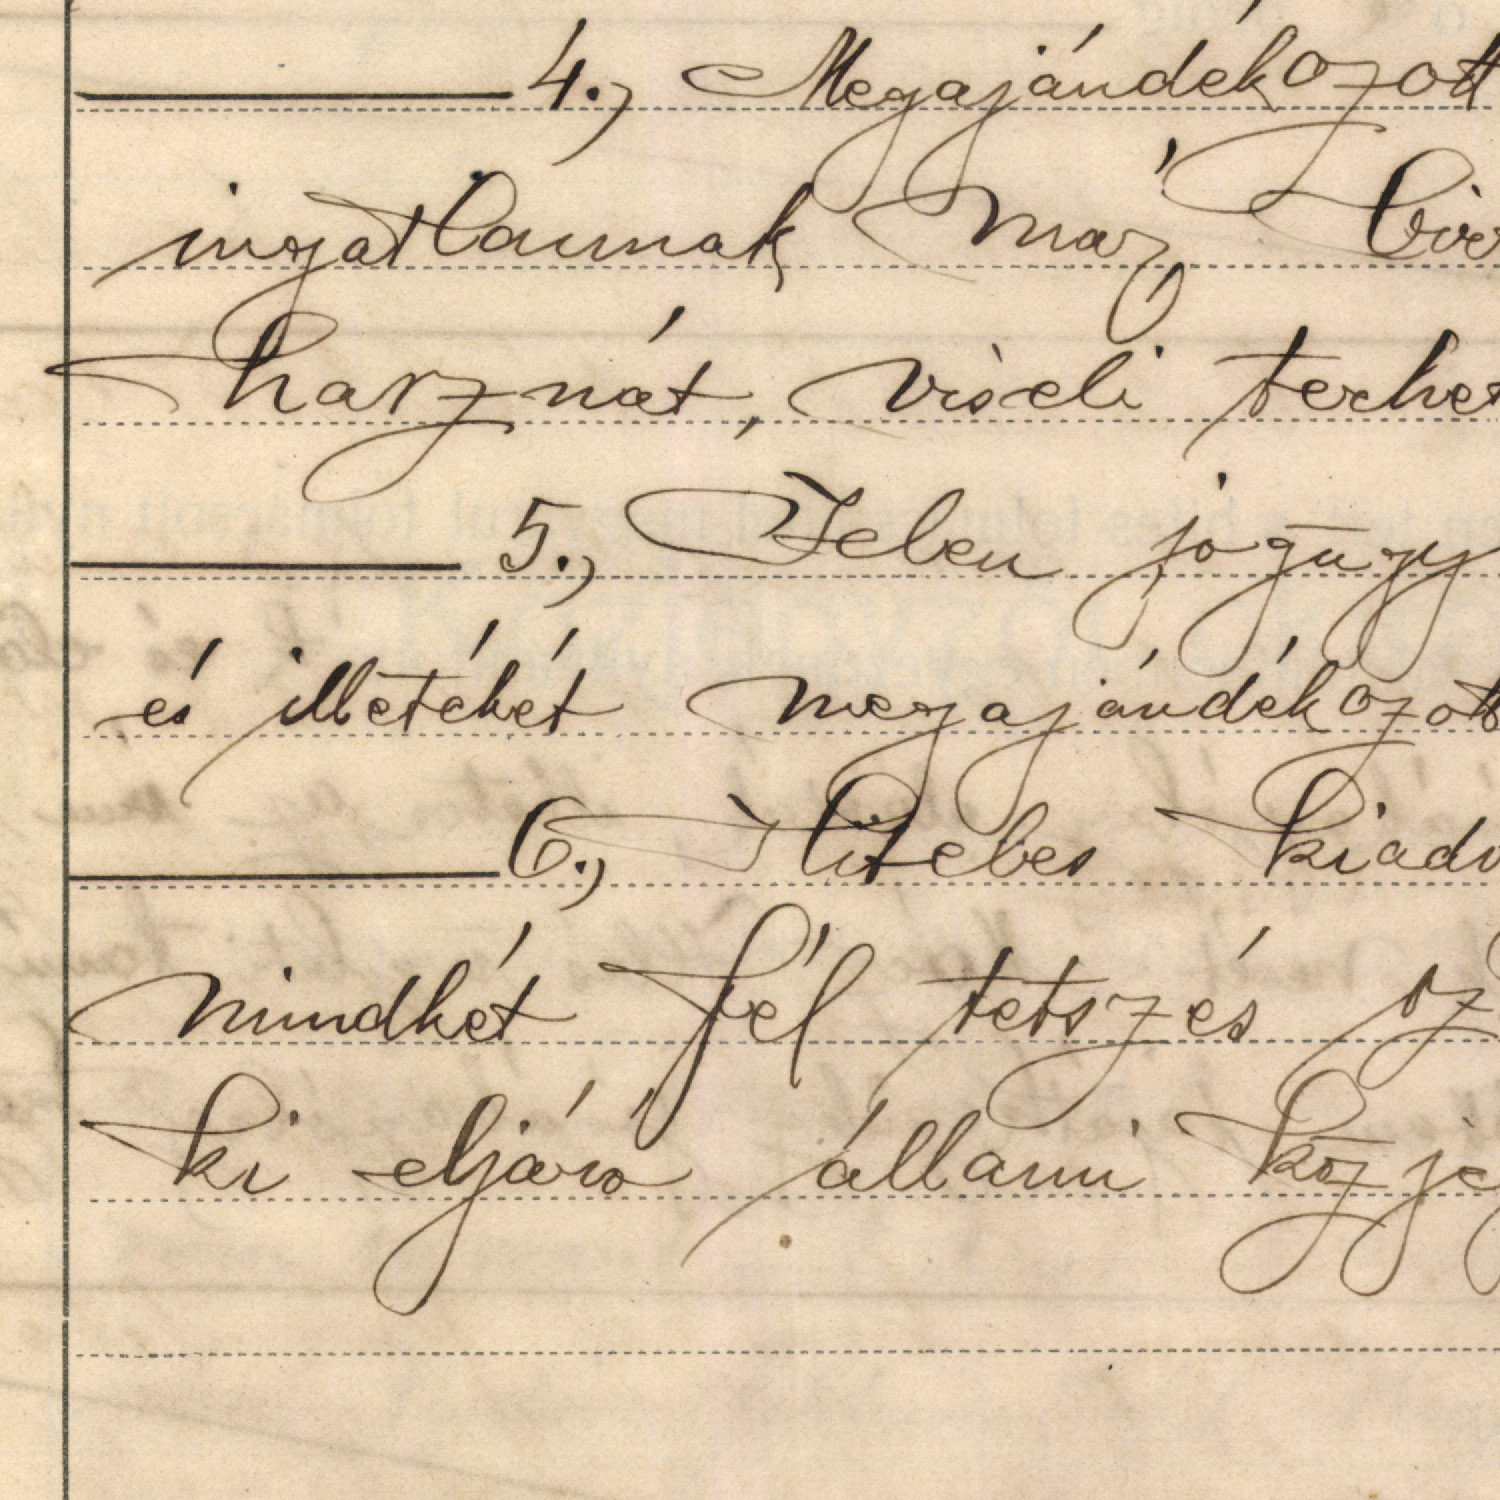 4., Megajándékozott
ingatlannak már bir
hasznát, viseli terhet
5., Jelen jogügy
és illetékét megajándékozott
6., Hitebes kiadv
mindkét fél tetszés sz
ki eljáró állami közje